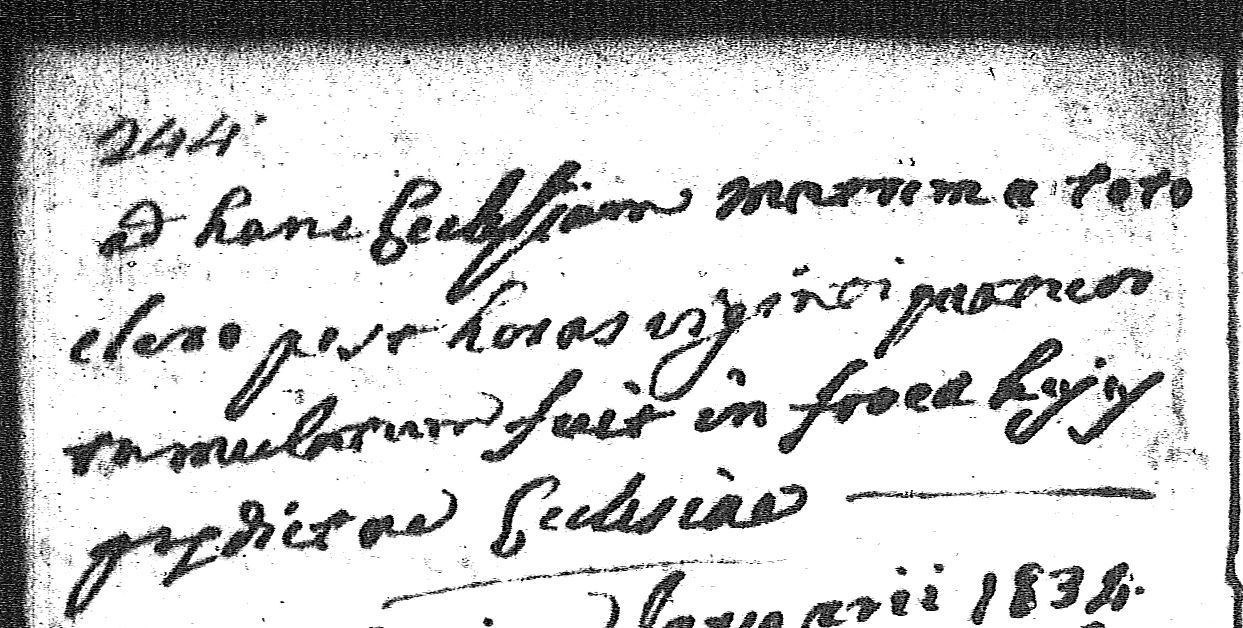 244
ad hanc Ecclesiam matrem a toto
clero post horas viginti quatuor
tumulatum fuit in fovea hujus
predictae Ecclesiae
Januarii 1834.